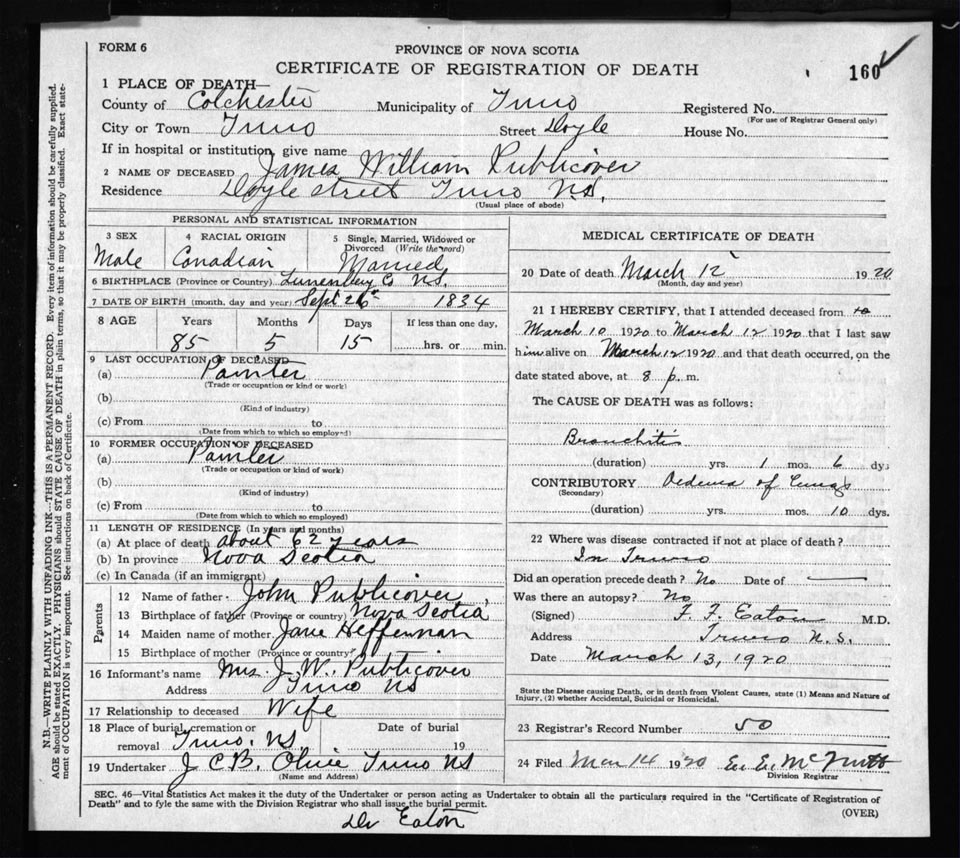 FORM 6
PROVINCE OF NOVA SCOTIA
CERTIFICATE OF REGISTRATION OF DEATH
160
1 PLACE OF DEATH—
County of Colchester Municipality of Truro Registered No.
(For use of Registrar General only)
City or Town Truro Street Doyle House No.
If in hospital or institution, give name
2 NAME OF DECEASED James William Publicover
Residence Doyle street Truro N.S.
(Usual place of abode)
PERSONAL AND STATISTICAL INFORMATION
3 SEX Male
4 RACIAL ORIGIN Canadian
5 Single, Married, Widowed or Divorced (Write the word) Married
6 BIRTHPLACE (Province or Country) Lunenburg Co NS.
7 DATE OF BIRTH (month, day and year) Sept 26th 1834
8 AGE Years Months Days If less than one day,
85 5 15 hrs. or min.
9 LAST OCCUPATION OF DECEASED
(a) Painter
(Trade or occupation or kind or work)
(b)
(Kind of industry)
(c) From to
(Date from which to which so employed)
10 FORMER OCCUPATION OF DECEASED
(a) Painter
(Trade or occupation or kind of work)
(b)
(Kind of industry)
(c) From to
(Date from which to which so employed)
11 LENGTH OF RESIDENCE (In years and months)
(a) At place of death about 62 years
(b) In province Nova Scotia
(c) In Canada (if an immigrant)
Parents
12 Name of father John Publicover
13 Birthplace of father (Province or country) Nova Scotia
14 Maiden name of mother Jane Heffernan
15 Birthplace of mother (Province or country)
16 Informant's name Mrs. J. W. Publicover
Address Truro NS
17 Relationship to deceased Wife
18 Place of burial, cremation or removal Truro. NS
Date of burial 19
19 Undertaker J. C. B. Olive Truro NS
(Name and Address)
MEDICAL CERTIFICATE OF DEATH
20 Date of death March 12 1920
(Month, day and year)
21 I HEREBY CERTIFY, that I attended deceased from to
March 10 1920 to March 12 1920 that I last saw
him alive on March 12 1920 and that death occurred, on the
date stated above, at 8 p. m.
The CAUSE OF DEATH was as follows:
Bronchitis
(duration) yrs. 1 mos. 6 dys
CONTRIBUTORY Oedema of Lungs
(Secondary)
(duration) yrs. mos. 10 dys.
22 Where was disease contracted if not at place of death?
In Truro
Did an operation precede death? No Date of —
Was there an autopsy? No
(Signed) F. F. Eaton M.D.
Address Truro N. S.
Date March 13, 1920
State the Disease causing Death, or in death from Violent Causes, state (1) Means and Nature of
Injury, (2) whether Accidental, Suicidal or Homicidal.
23 Registrar's Record Number 50
24 Filed Mar 14 1920 E. E. McNutt
Division Registrar
SEC. 46—Vital Statistics Act makes it the duty of the Undertaker or person acting as Undertaker to obtain all the particulars required in the "Certificate of Registration of
Death" and to fyle the same with the Division Registrar who shall issue the burial permit.
(OVER)
Dr Eaton
N.B.—WRITE PLAINLY WITH UNFADING INK—THIS IS A PERMANENT RECORD. Every item of information should be carefully supplied.
AGE should be stated EXACTLY. PHYSICIANS should STATE CAUSE OF DEATH in plain terms, so that it may be properly classified. Exact state-
ment of OCCUPATION is very important. See instructions on back of Certificate.